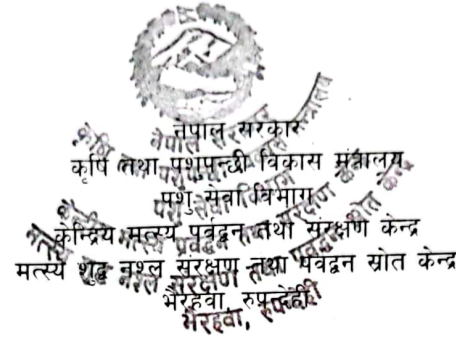 नेपाल सरकार
कृषि तथा पशुपन्छी विकास मन्त्रालय
पशु सेवा विभाग
केन्द्रिय मत्स्य प्रर्वद्धन तथा संरक्षण केन्द्र
मत्स्य शुद्ध नश्ल संरक्षण तथा पर्वद्धन स्रोत केन्द्र
भैरहवा, रुपन्देही